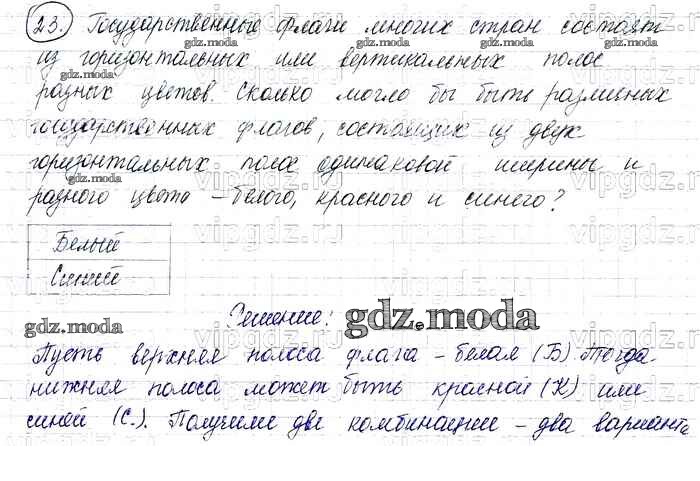 23. Государственные флаги многих стран состоят
из горизонтальных или вертикальных полос
разных цветов. Сколько могло бы быть различных
государственных флагов, состоящих из двух
горизонтальных полос одинаковой ширины и
разного цвета – белого, красного и синего?
Белый
Синий
Решение:
Пусть верхняя полоса флага – белая (Б). Тогда
нижняя полоса может быть красной (К) или
синей (С.). Получили две комбинации – два варианта
gdz.moda
gdz.moda
gdz.moda
gdz.moda
gdz.moda
gdz.moda
gdz.moda
vipgdz.ru